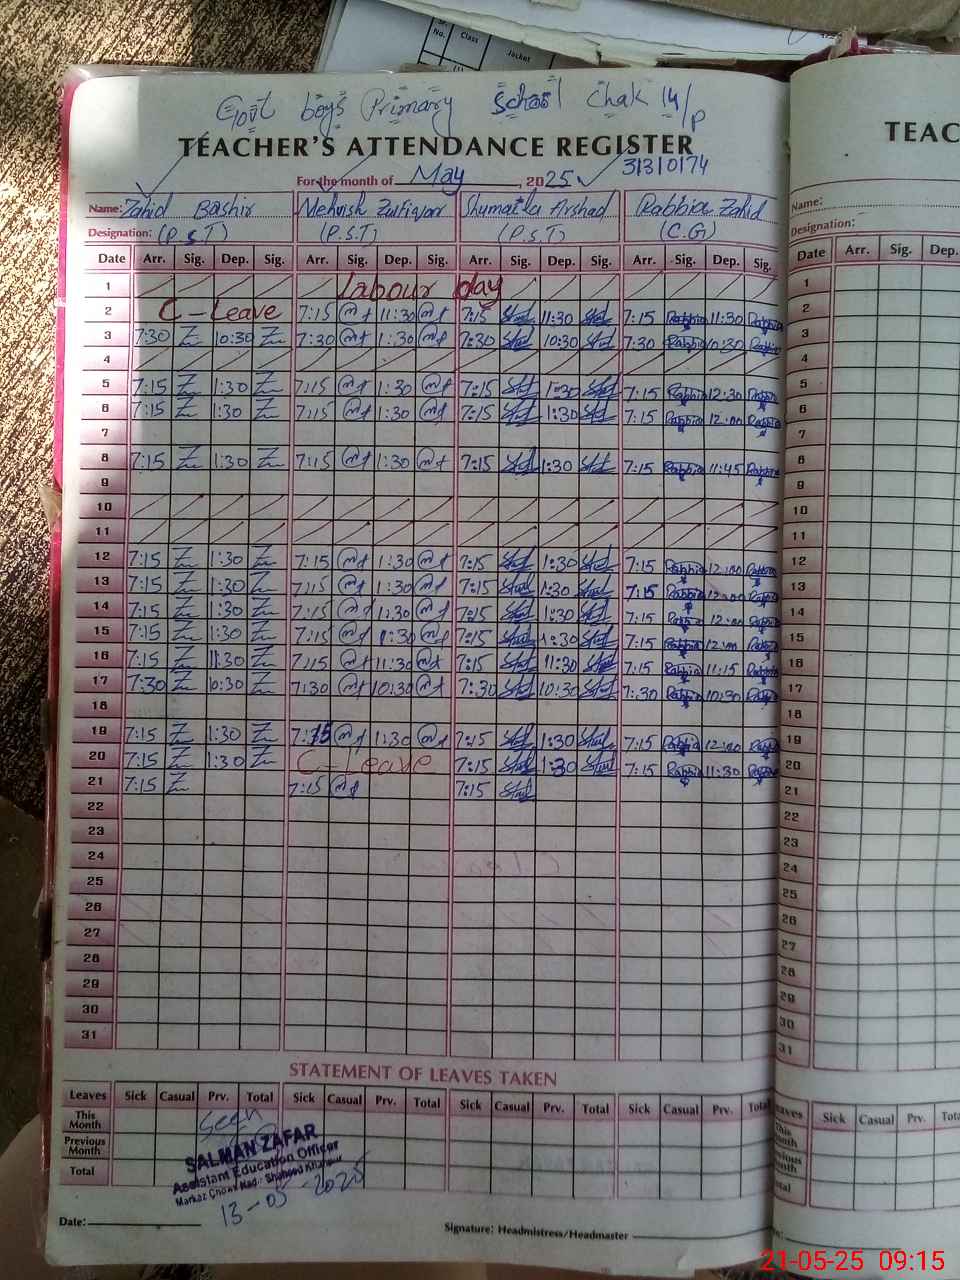 No. Class Jacket
Govt boys Primary School Chak 14/P
TEACHER'S ATTENDANCE REGISTER
31310174
For the month of May, 2025
Name: Zahid Bashir Mehvish Zulfiqar Shumaila Arshad Rabbia Zahid
Designation: (P.S.T) (P.S.T) (P.S.T) (C.G)
Date Arr. Sig. Dep. Sig. Arr. Sig. Dep. Sig. Arr. Sig. Dep. Sig. Arr. Sig. Dep. Sig.
1 Labour day
2 C-Leave 7:15 11:30 7:15 11:30 7:15 Rabbia 11:30 Rabbia
3 7:30 10:30 7:30 7:30 10:30 7:30 Rabbia 10:30 Rabbia
4
5 7:15 1:30 7:15 1:30 7:15 1:30 7:15 Rabbia 12:30 Rabbia
6 7:15 1:30 7:15 1:30 7:15 1:30 7:15 Rabbia 12:00 Rabbia
7
8 7:15 1:30 7:15 1:30 7:15 1:30 7:15 Rabbia 11:45 Rabbia
9
10
11
12 7:15 1:30 7:15 1:30 7:15 1:30 7:15 Rabbia 12:00 Rabbia
13 7:15 1:30 7:15 1:30 7:15 1:30 7:15 Rabbia 12:00 Rabbia
14 7:15 1:30 7:15 1:30 7:15 1:30 7:15 Rabbia 12:00 Rabbia
15 7:15 1:30 7:15 1:30 7:15 1:30 7:15 Rabbia 12:00 Rabbia
16 7:15 11:30 7:15 11:30 7:15 11:30 7:15 Rabbia 11:15 Rabbia
17 7:30 10:30 7:30 10:30 7:30 10:30 7:30 Rabbia 10:30 Rabbia
18
19 7:15 1:30 7:15 1:30 7:15 1:30 7:15 Rabbia 12:00 Rabbia
20 7:15 1:30 C-Leave 7:15 1:30 7:15 Rabbia 11:30 Rabbia
21 7:15 7:15 7:15
22
23
24
25
26
27
28
29
30
31
STATEMENT OF LEAVES TAKEN
Leaves Sick Casual Prv. Total Sick Casual Prv. Total Sick Casual Prv. Total Sick Casual Prv. Total
This Month
Previous Month
Total
Seen
SALMAN ZAFAR
Assistant Education Officer
Markaz
13-05-2025
Date:
Signature: Headmistress/Headmaster
TEAC
Name:
Designation:
Date Arr. Sig. Dep.
1
2
3
4
5
6
7
8
9
10
11
12
13
14
15
16
17
18
19
20
21
22
23
24
25
26
27
28
29
30
31
Leaves Sick Casual Prv.
21-05-25 09:15